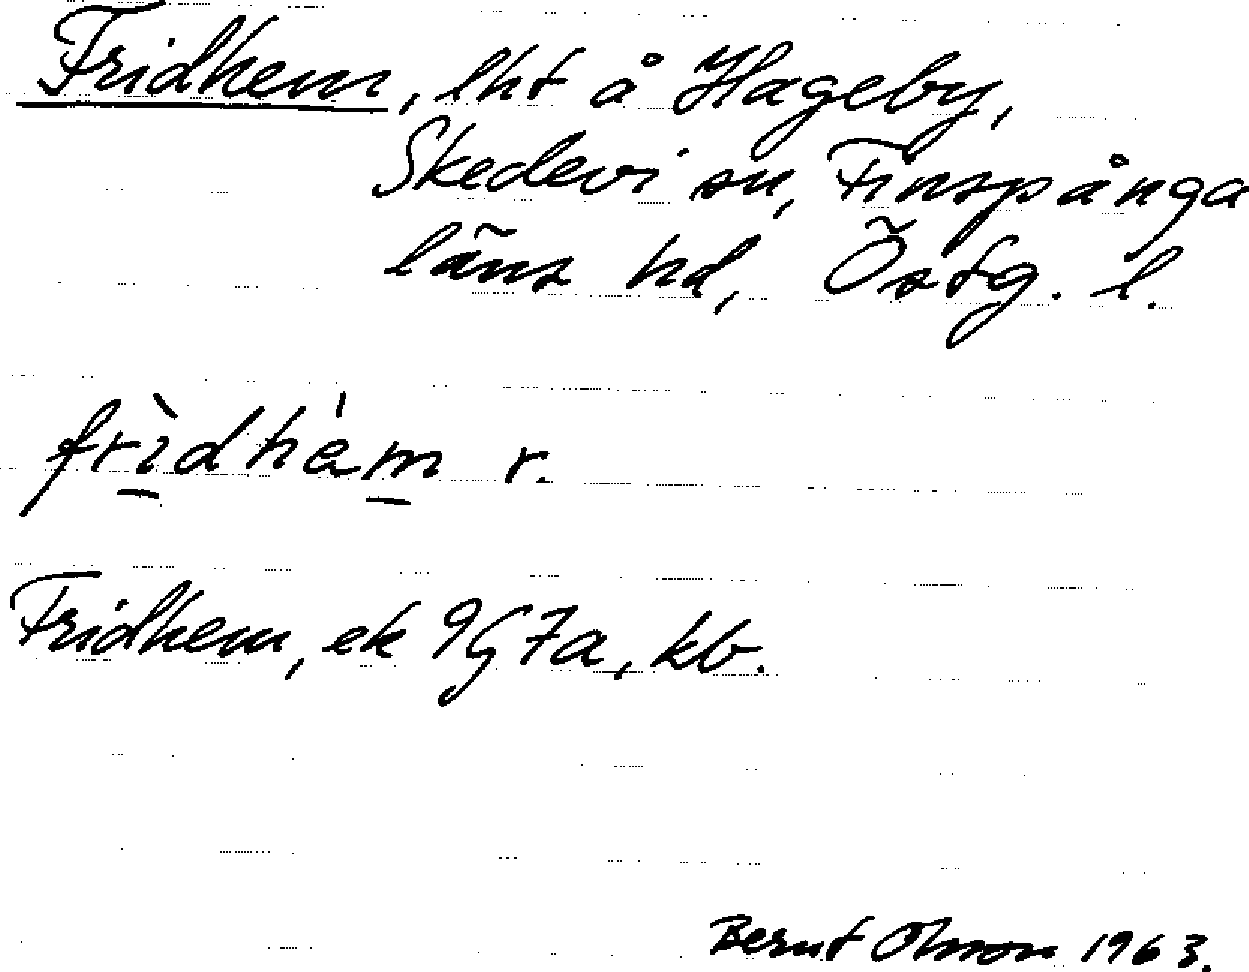 Fridhem, lht å Hageby,
Skedevi sn, Finspånga
läns hd, Östg. l.
frìdhém r.
Fridhem, ek 9G7a, kb.
Bernt Olsson 1963.